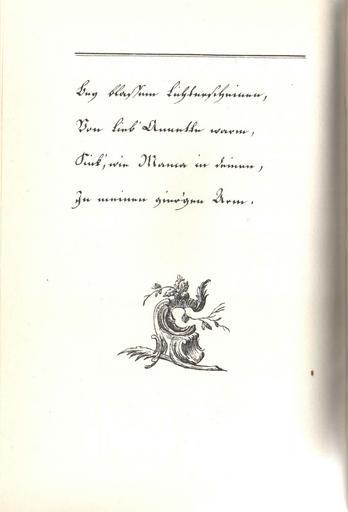 Bey blassem Lichterscheinen,
Von Lieb' Annette warm,
Sink', wie Mama in deinen,
In meinen gier'gen Arm.